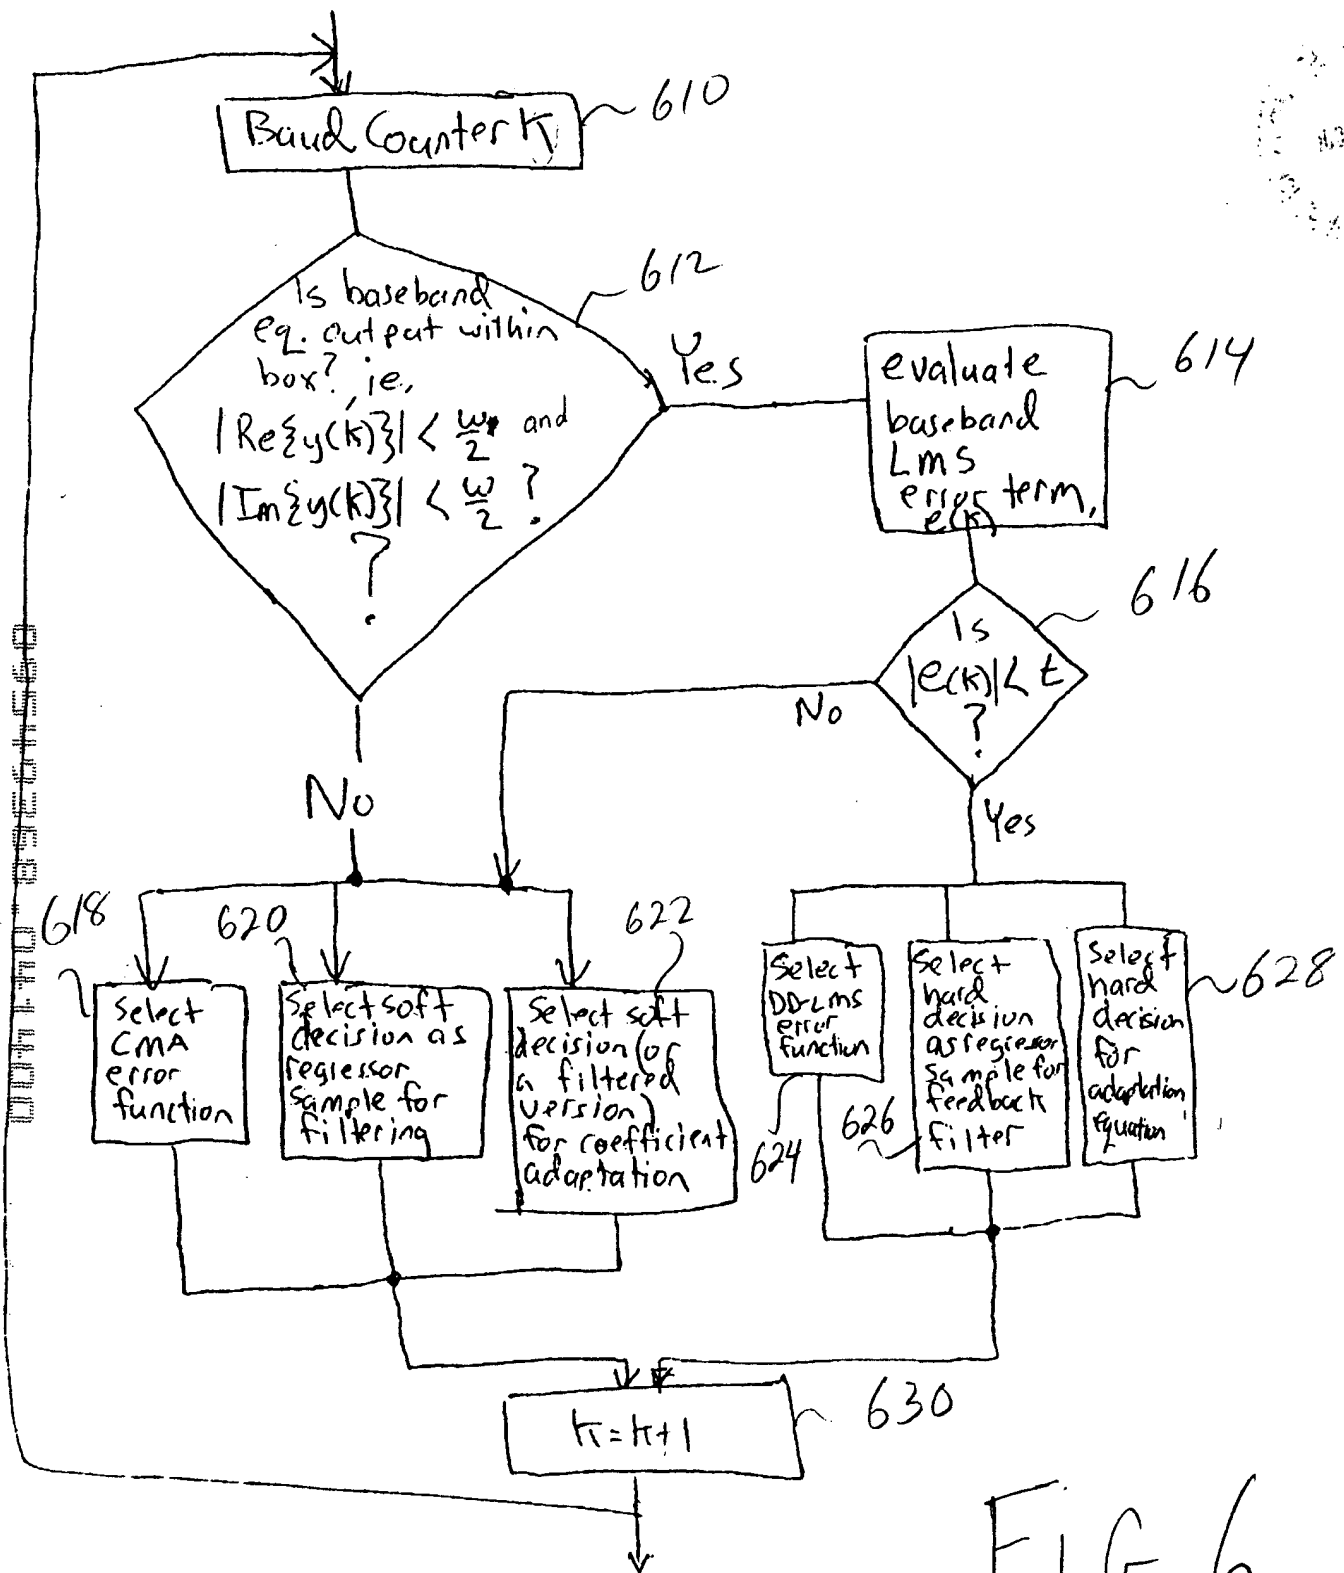 Baud Counter K
610
Is baseband
eq. output within
box? ie,
|Re{y(k)}| < w/2 and
|Im{y(k)}| < w/2 ?
?
612
Yes
evaluate
baseband
LMS
error term,
e(k)
614
Is
|e(k)| < t
?
616
No
Yes
No
618
Select
CMA
error
function
620
Select soft
decision as
regressor
sample for
filtering
622
Select soft
decision (or
a filtered
version)
for coefficient
adaptation
Select
DD-LMS
error
function
624
Select
hard
decision
as regressor
sample for
feedback
filter
626
Select
hard
decision
for
adaptation
equation
628
K = K+1
630
FIG 6